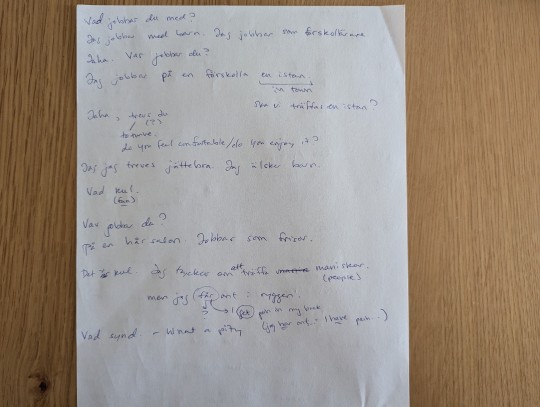 Vad jobbar du med?
Jag jobbar med barn. Jag jobbar som förskollärare
Jaha. Var jobbar du?
Jag jobbar på en förskolla en istan.
in town
ska vi träffas en istan?
Jaha, trevs du
(?)
to
do you feel comfortable/do you enjoy it?
Jag jag treves jättebra. Jag älsker barn.
Vad kul.
(fun)
Var jobbar du?
på en hår salon. Jobbar som frisor.
Det är kul. Jag tycker om att träffa maniskar.
(people)
men jag får ont i ryggen.
? I get pain in my back
(jag har ont - I have pain...)
Vad synd. - What a pity